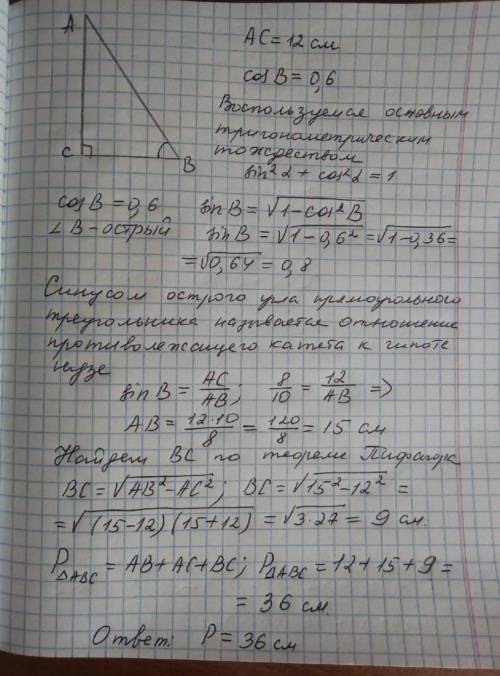 A
C
B
AC = 12 см
cos B = 0,6
Воспользуемся основным
тригонометрическим
тождеством
sin²α + cos²α = 1
cos B = 0,6
∠B - острый
sin B = √1-cos²B
sin B = √1-0,6² = √1-0,36 =
= √0,64 = 0,8
Синусом острого угла прямоугольного
треугольника называется отношение
противолежащего катета к гипоте
нузе
sin B = AC/AB; 8/10 = 12/AB =>
AB = 12·10/8 = 120/8 = 15 см
Найдем BC по теореме Пифагора
BC = √AB²-AC²; BC = √15²-12² =
= √(15-12)(15+12) = √3·27 = 9 см.
P△ABC = AB + AC + BC; P△ABC = 12 + 15 + 9 =
= 36 см.
Ответ: P = 36 см